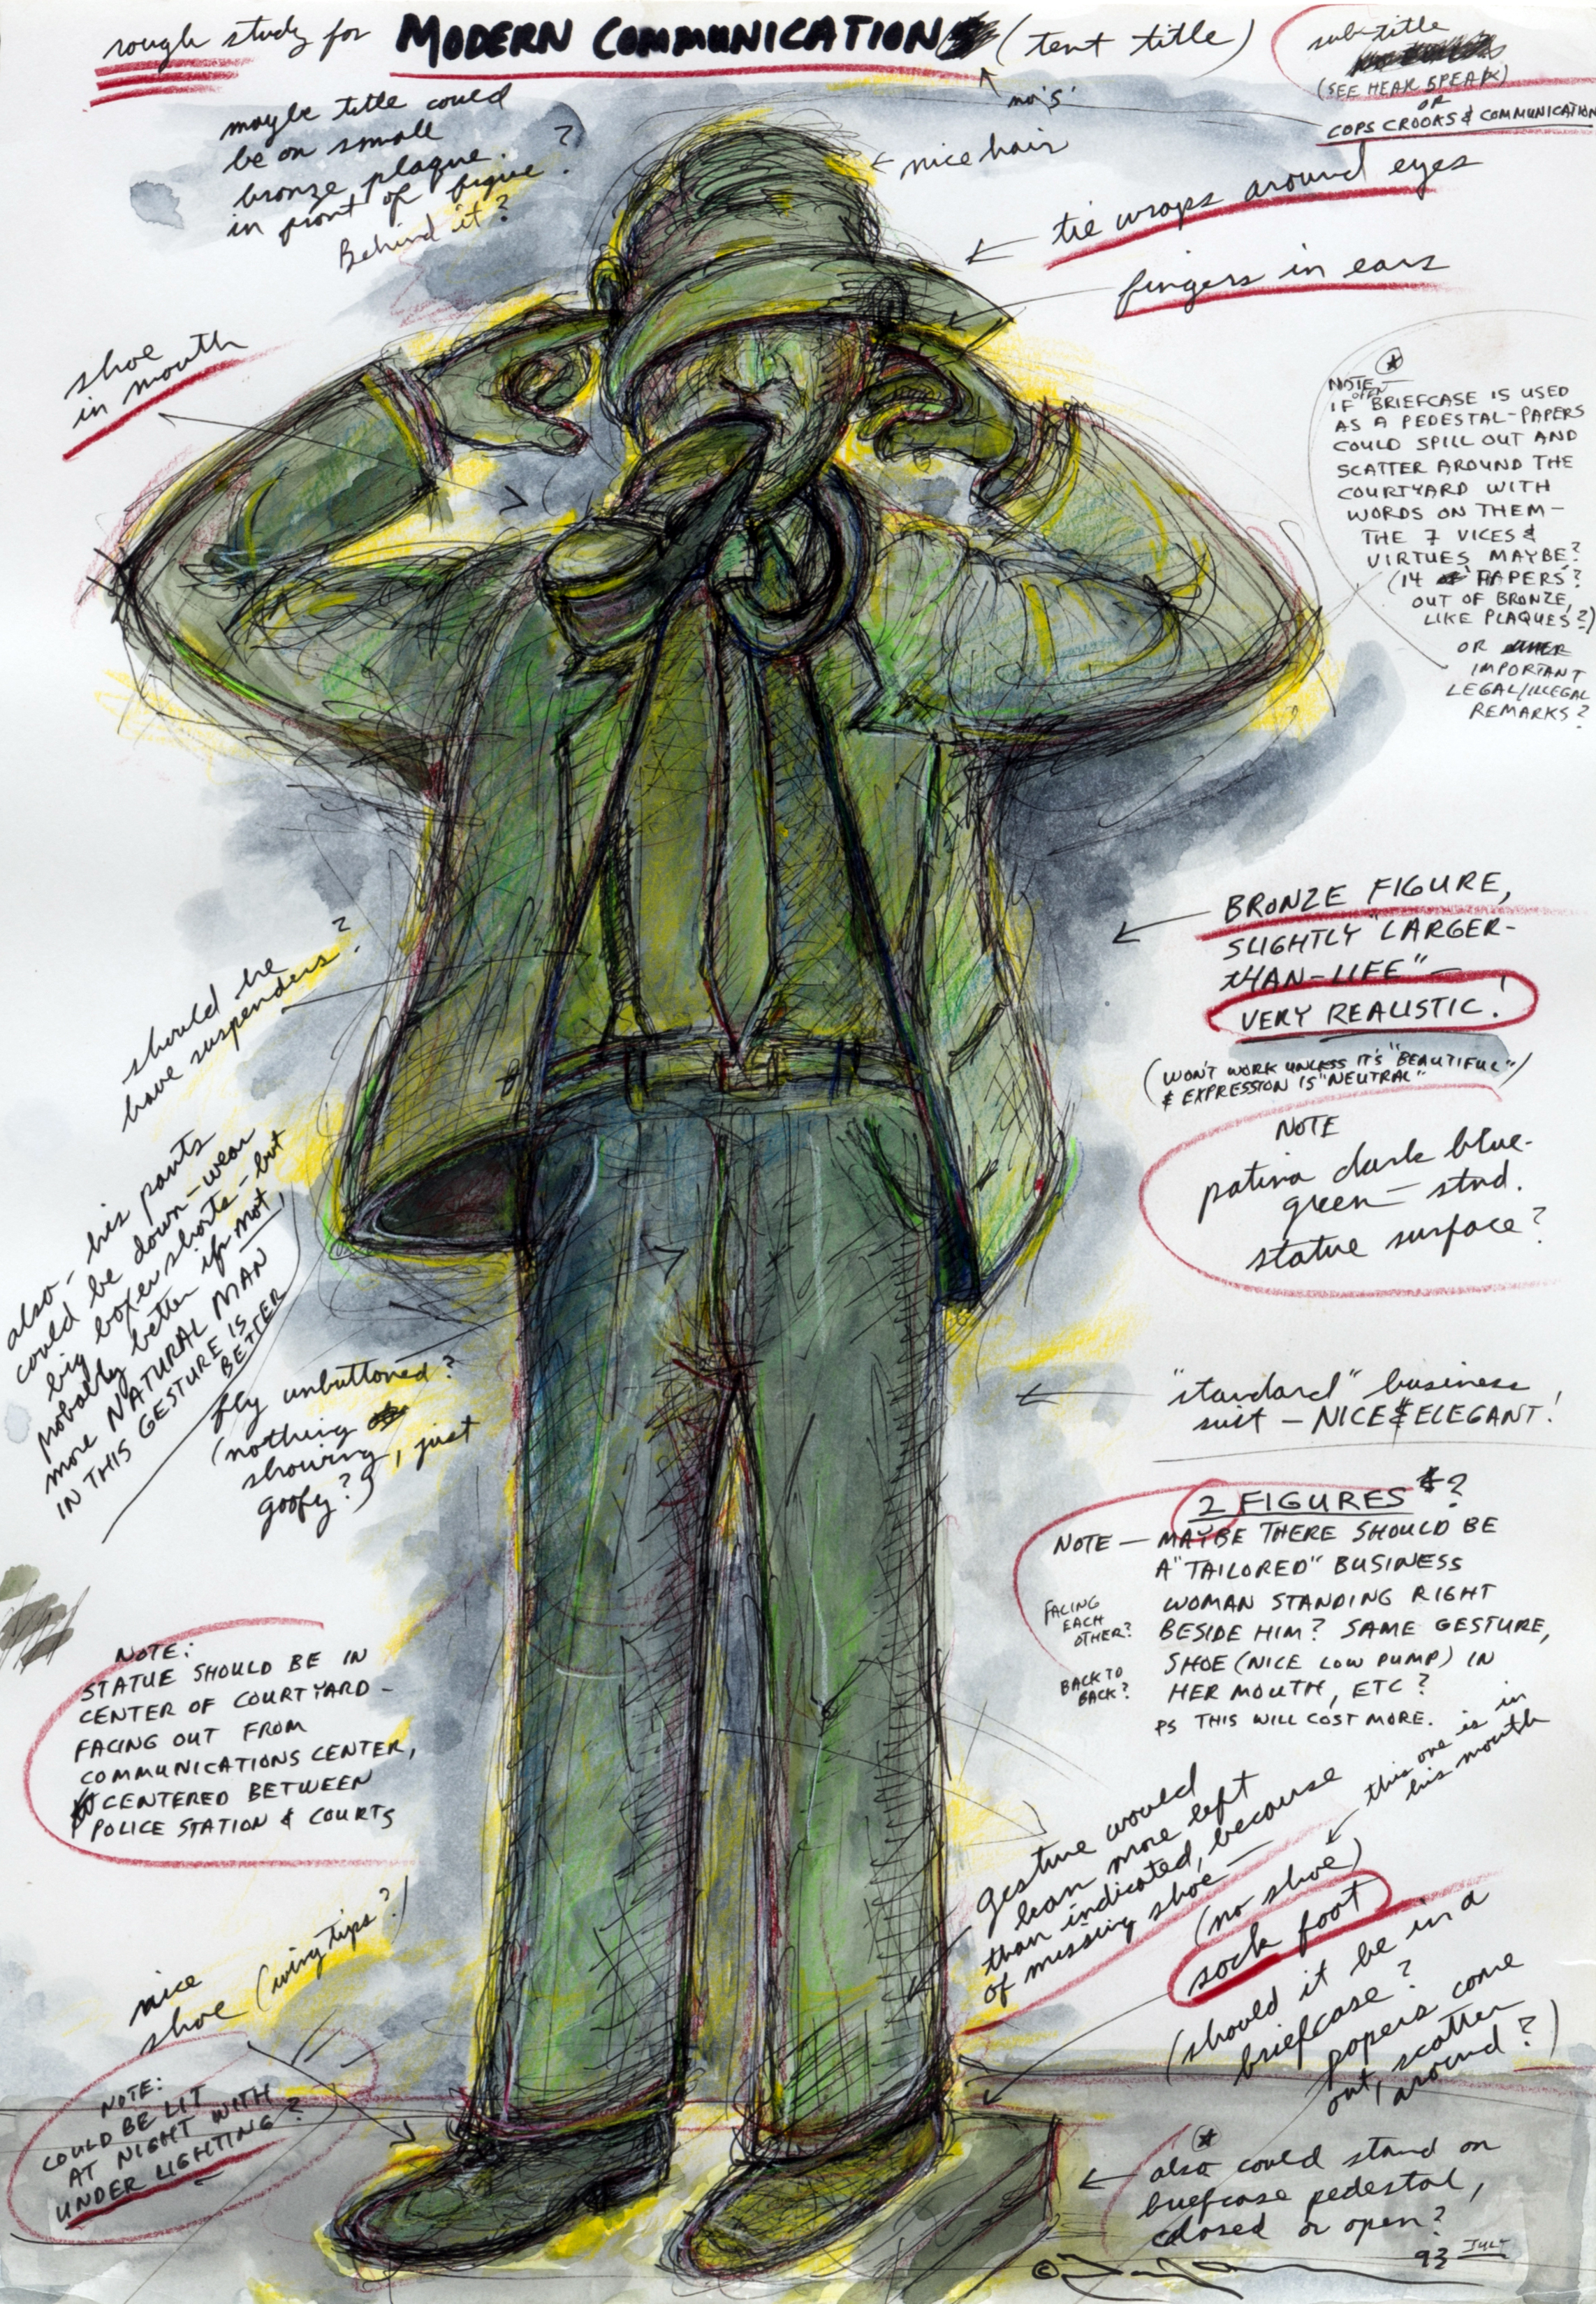 rough study for MODERN COMMUNICATION (tent title)
no 's'
sub-title
(SEE HEAR SPEAK)
OR
COPS CROOKS & COMMUNICATION
maybe title could
be on small
bronze plaque
in front of figure?
Behind it?
nice hair
tie wraps around eyes
fingers in ears
shoe
in mouth
NOTE
IF OPEN BRIEFCASE IS USED
AS A PEDESTAL-PAPERS
COULD SPILL OUT AND
SCATTER AROUND THE
COURTYARD WITH
WORDS ON THEM—
THE 7 VICES &
VIRTUES MAYBE?
(14 PAPERS?
OUT OF BRONZE,
LIKE PLAQUES?)
OR
IMPORTANT
LEGAL/ILLEGAL
REMARKS?
BRONZE FIGURE,
SLIGHTLY "LARGER-
THAN-LIFE"—
VERY REALISTIC!
(WON'T WORK UNLESS IT'S "BEAUTIFUL"
& EXPRESSION IS "NEUTRAL")
should he
have suspenders?
NOTE
patina dark blue-
green — stnd.
statue surface?
also - his pants
could be down - wear
big boxer shorts - but
probably better if not,
more NATURAL MAN
IN THIS GESTURE IS
BETTER
fly unbuttoned?
(nothing
showing, just
goofy?)
"standard" business
suit — NICE & ELEGANT!
2 FIGURES?
NOTE — MAYBE THERE SHOULD BE
A "TAILORED" BUSINESS
WOMAN STANDING RIGHT
BESIDE HIM? SAME GESTURE,
SHOE (NICE LOW PUMP) IN
HER MOUTH, ETC?
PS THIS WILL COST MORE.
FACING
EACH
OTHER?
BACK TO
BACK?
NOTE:
STATUE SHOULD BE IN
CENTER OF COURTYARD -
FACING OUT FROM
COMMUNICATIONS CENTER,
CENTERED BETWEEN
POLICE STATION & COURTS
gesture would
lean more left
than indicated, because
of missing shoe —
this one is in
his mouth
(no shoe)
sock foot
(should it be in a
briefcase?
papers come
out, scatter
around?)
nice
shoe (wing tips?)
NOTE:
COULD BE LIT
AT NIGHT WITH
UNDER LIGHTING?
also could stand on
briefcase pedestal,
closed or open?
93 JULY
©